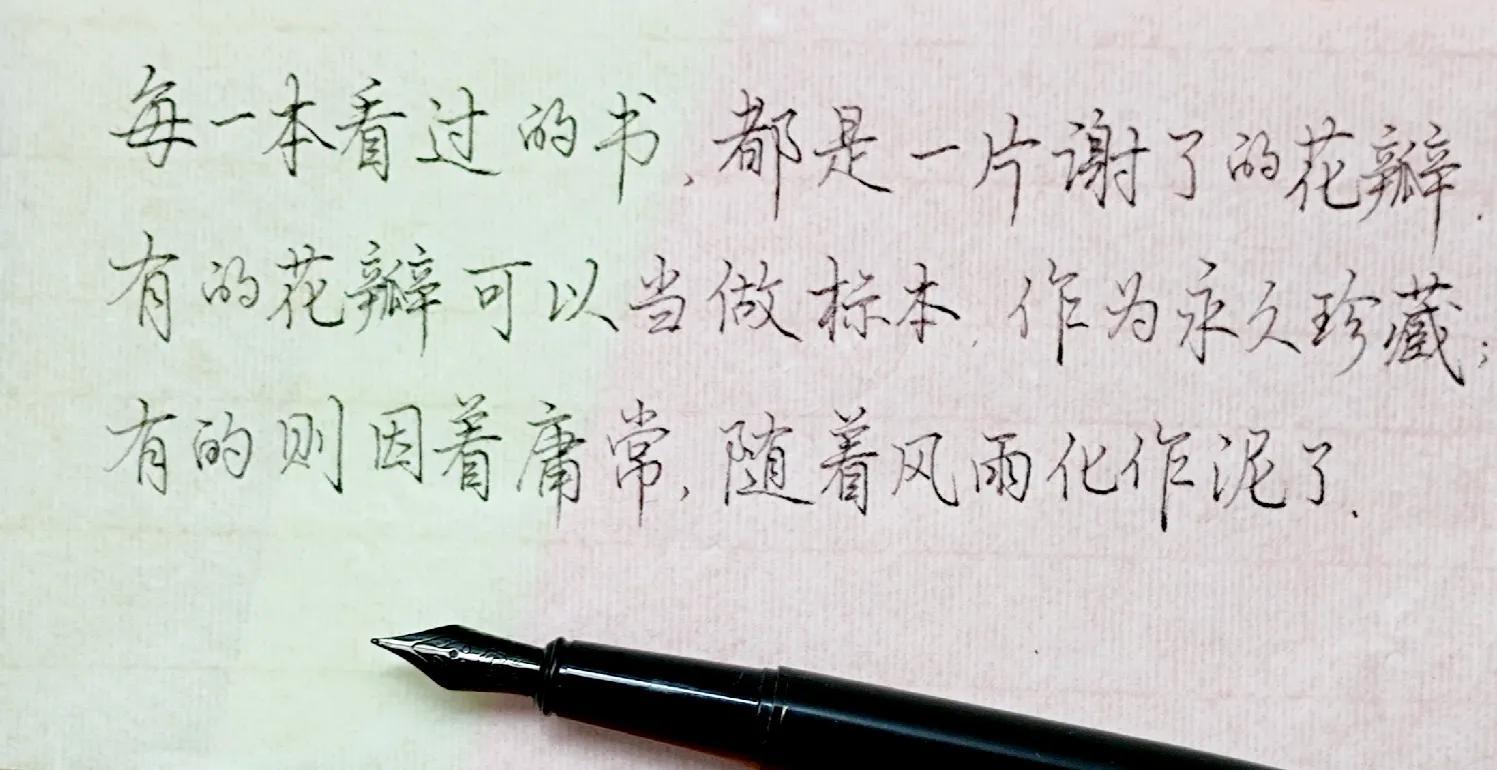 每一本看过的书,都是一片谢了的花瓣.
有的花瓣可以当做标本,作为永久珍藏;
有的则因着庸常,随着风雨化作泥了.